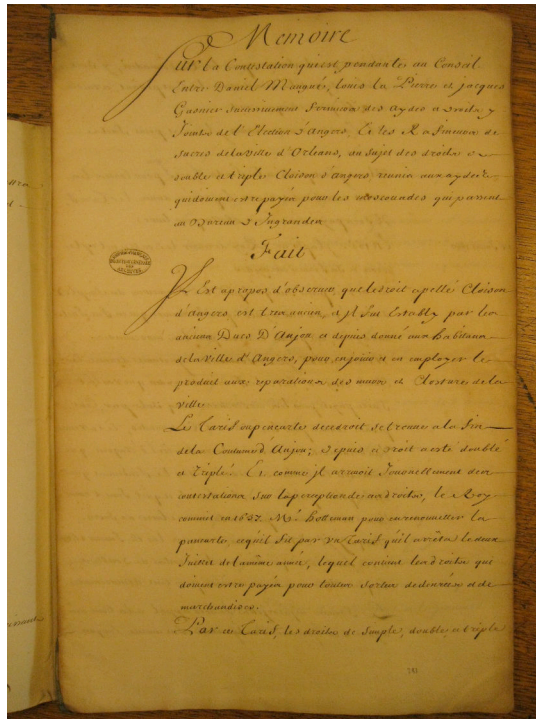 Memoire
Sur la Contestation qui est pendante au Conseil
Entre Daniel Mauguis, louis la Pierre et jacques
Gasnier Anciennement fermiers des aydes et droits y
Joints de l'Election d'Angers, Et les Rafineurs de
sucres dela ville d'Orleans, au sujet des droits de
double et triple Cloison d'angers reunis aux aydes
qui doivent estre payéz pour les moscouades qui passent
au Bureau d'Ingrandes
Fait
Il Est apropos d'observer que ledroit apellé Cloison
d'angers est tres ancien, et jl fut Estably par les
anciens Ducs D'Anjou et depuis donné aux habitans
dela ville d'Angers, pour enjouir et en employer le
produit aux reparations des murs et Closture dela
ville
Le Tarif ou pancarte de ce droit se trouve a la fin
dela Coutume d'Anjou; depuis ce droit a esté doublé
et triplé. Et comme jl arrivoit Journellement des
contestations sur la perception de ces droits, le Roy
commit en 1637. Mr. hotteman pour en renouveller la
pancarte, cequ'il fit par un Tarif qu'il arreta le deux
Juillet dela même année, lequel contient les droits qui
doivent estre payéz pour toutes sortes de denrées et de
marchandises.
Par ce Tarif, les droits de simple, double, et triple